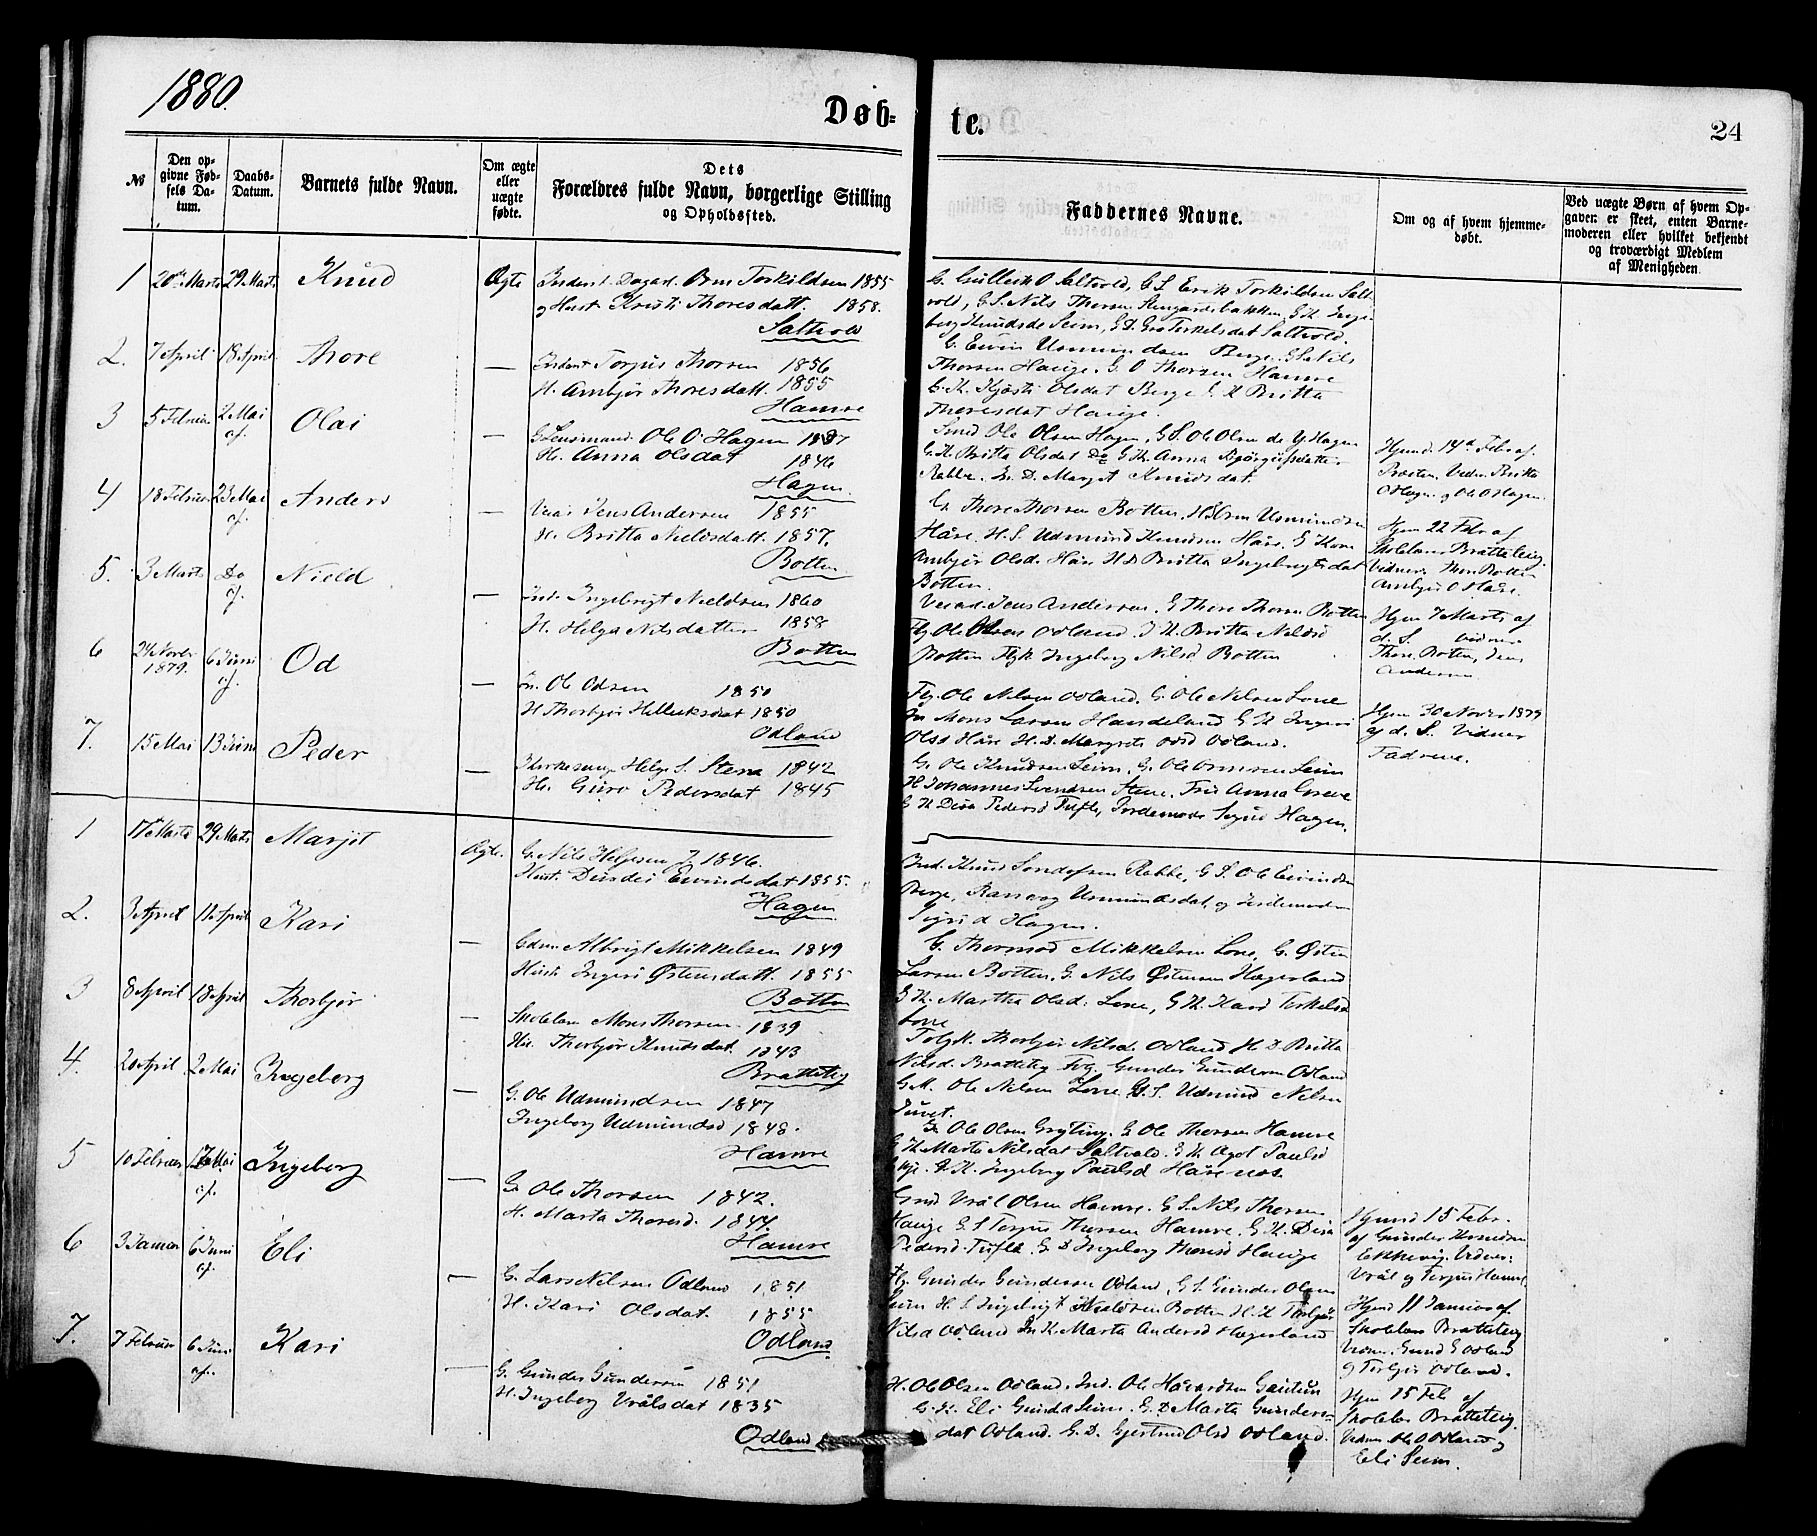 1880.
Døb-
te.
24
№
Den op-
givne Fød-
sels Da-
tum.
Daabs-
Datum.
Barnets fulde Navn.
Om ægte
eller
uægte
fødte.
Dets
Forældres fulde Navn, borgerlige Stilling
og Opholdssted.
Faddernes Navne.
Om og af hvem hjemme-
døbt.
Ved uægte Børn af hvem Op-
gaven er skeet, enten Barne-
moderen eller hvilket bekjendt
og troværdigt Medlem
af Menigheden.
1 20de Marts 29 Marts Knud Ægte
Inderst. Dagarb. Orm Torkildsen 1855
og Hust. Kristi Thoresdatt. 1858.
Saltvold
G. Gullerik O Saltvold, G S. Erik Torkildsen Salt-
vold, G. S. Nils Thorsen G K Inge-
berg Knudsd Seim, G. D. Gro Terkelsdat Saltvold.
2. 7 April 18 April Thore —
Inderst Torjus Thorsen 1856
H. Ambjør Thoresdatt. 1855
Hamre
G. Eivin Usmundsen Berge. G S Nils
Thorsen Hauge. G. O Thorsen Hamre
G. K. Kjøsti Olsdat Berge G K Britta
Thoresdat Hauge.
3 5 Februar 2 Mai cf. Olai —
G Lensmand. Ole O. Hagen 1837
H. Anna Olsdat 1846
Hagen
Lmd Ole Olsen Hagen, G S. Ole Olsen de Y. Hagen
G. K. Britta Olsdat Do G K. Anna
Rabbe. In. D. Margit Knudsdat.
Hjemd. 14de Febr af
Præsten. Vidn. Britta
O Hagen og Ole O Hagen.
4 18 Februar 23 Mai cf. Anders —
Jens Andersen 1855
H. Britta Nieldsdatt. 1857.
Botten
G. Thore Thorsen Botten, H Orm Usmundsen
Håre. H. S. Udmund Knudsen Håre. G Kone
Ambjør Olsd. Håre H D Britta Ingebrigtsdat
Botten.
Hjem 22 Febr af
Skolelær Bratteteig.
Vidner. Thore Botten
Ambjør O Håre.
5. 3 Marts Do cf. Nield —
Ind. Ingebrigt Nieldsen 1860
H. Helga Nilsdatter 1858
Botten
Jens Andersen. G Thore Thorsen Botten
Fg. Ole Olsen Odland. I K. Britta Nieldsd
Botten Fgk Ingeborg Nilsd Botten
Hjem 7 Marts af
d. S. vidner
Thore Botten, Jens
Andersen
6 24 Novbr 1879. 6 Juni cf. Od —
In. Ole Odsen 1850
H Thorbjør Helleiksdat 1850
Odland
Fg. Ole Nilsen Odland. G. Ole Nilsen Lone
In Mons Larsen Handeland G K Ingeri
Olsd Håre H. D. Margrete Odsd Odland.
Hjem 30 Novbr 1879
af d. S. Vidner
Fadrene.
7. 15 Mai 13 Juni Peder —
Kirkesang. Helge S. Stene 1842
H. Guro Pedersdat 1845
G. Ole Knudsen Seim, G. Ole Ormsen Seim
H Johannes Svendsen Stene, Fru Anna Greve
G K Disa Pedersd Tufte, Jordemoder Sigrid Hagen.
1 17de Marts 29 Marts Marjit Ægte.
G. Nils Helgesen J. 1846.
Hust. Eivindsdat 1855.
Hagen
Ind. Knud Sondresen Rabbe, G S. Ole Eivindsen
Berge, Rannveg Usmundsdat, og Jordemoder
Sigrid Hagen.
2. 3 April 11 April Kari —
Gdm. Albrigt Mikkelsen 1849
Hust Ingeri Østensdatt. 1855
Botten
G. Thormod Mikkelsen Lone, G. Østen
Larsen Botten, G. Nils Østensen Hagerland
G K. Martha Olsd. Lone, G K Kari Terkelsd
Lone
3 8 April 18 April Thorbjør —
Skolelær Mons Thorsen 1839
Hu. Thorbjør Knudsdat 1843
Bratteteig
Folgk. Thorbjør Nilsd. Odland H. D. Britta
Nilsd. Bratteteig Fg. Gunder Gundersn Odland
G. M. Ole Nilsen Lone G S. Udmund Nilsen
Juvet.
4. 20 April 2 Mai Ingeborg —
G. Ole Udmundsen 1847
Ingeborg Udmundsd 1848.
Hamre
In Ole Olsen Gryting. G Ole Thorsen Hamre
G K Marta Nilsdat Saltvold. G K Agot Paulsd
G K. Ingeborg Paulsd Håre nos.
5 10 Februar 17 Mai cf. Ingeborg —
G. Ole Thorsen 1842.
H. Marta Thoresd. 1844.
Hamre
Gmd Vrål Olsen Hamre. G S. Nils Thorsen
Hauge G. S Torjus Thorsen Hamre. G. K. Disa
Pedersd. Tufte. G D Ingeborg Thoresd Hauge
Hjemd 15 Febr.
af Gunder Knudsen
Ekkevig. Vidner
Vrål og Torjus Hamre
6 3 Januar 6 Juni cf. Eli —
G. Lars Nilsen Odland 1851
H. Kari Olsdat 1855
Odland
Fg. Gunder Gundersen Odland, G S. Gunder Olsen
Seim H. S. Ingebrigt Nieldsen Botten H. K Torbjør
Nilsd Odland In K. Marta Andersd Hagerland
Hjemd 11 Januar af.
Skolelær Bratteteig
Vidner. Gund G Odland
og Torbjør Odland.
7. 7 Februar 6 Juni cf. Kari —
G. Gunder Gundersen 1851
H. Ingeborg Vrålsdat 1835
Odland
H. Ole Olsen Odland. Ind. Ole Håvardsen Gautun
G. K. Eli Gundsd Seim. G. D Marta Gunders-
dat Odland. G. D. Gjertrud Olsd Odland.
Hjem 15 Feb af
Skolelær Bratteteig.
Vidner Ole O Odland og
Eli Seim.